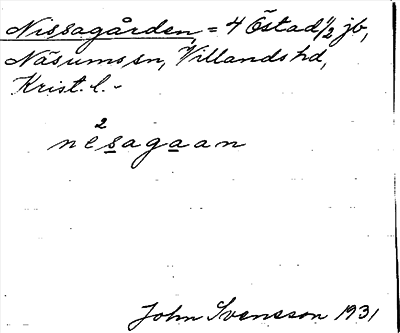 Nissagården = 4 Östad 1/2 jb,
Näsums sn, Villands hd,
Krist. l. -
2
nesagaan
John Svensson 1931